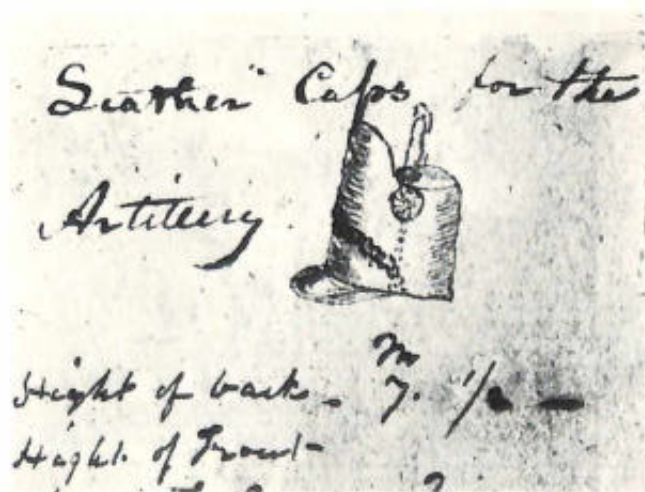 Leather Caps for the
Artillery
In
Hight of back - 7. 1/2 -
Hight of Front -